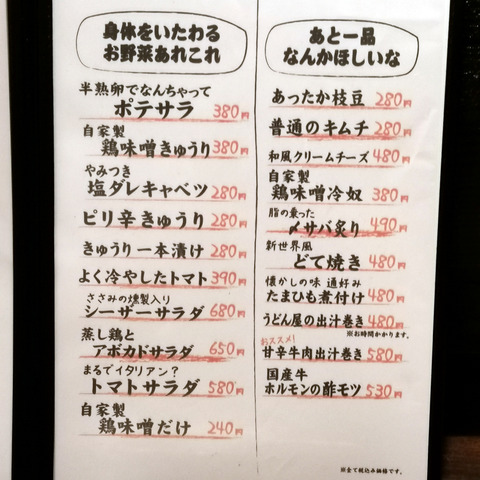 身体をいたわる
お野菜あれこれ
半熟卵でなんちゃって
ポテサラ 380円
自家製
鶏味噌きゅうり 380円
やみつき
塩ダレキャベツ 280円
ピリ辛きゅうり 280円
きゅうり一本漬け 280円
よく冷やしたトマト 390円
ささみの燻製入り
シーザーサラダ 680円
蒸し鶏と
アボカドサラダ 650円
まるでイタリアン?
トマトサラダ 580円
自家製
鶏味噌だけ 240円
あと一品
なんかほしいな
あったか枝豆 280円
普通のキムチ 280円
和風クリームチーズ 480円
自家製
鶏味噌冷奴 380円
脂の乗った
〆サバ炙り 490円
新世界風
どて焼き 480円
懐かしの味 通好み
たまひも煮付け 480円
うどん屋の出汁巻き 480円
※お時間かかります。
おススメ!
甘辛牛肉出汁巻き 580円
国産牛
ホルモンの酢モツ 530円
※全て税込み価格です。